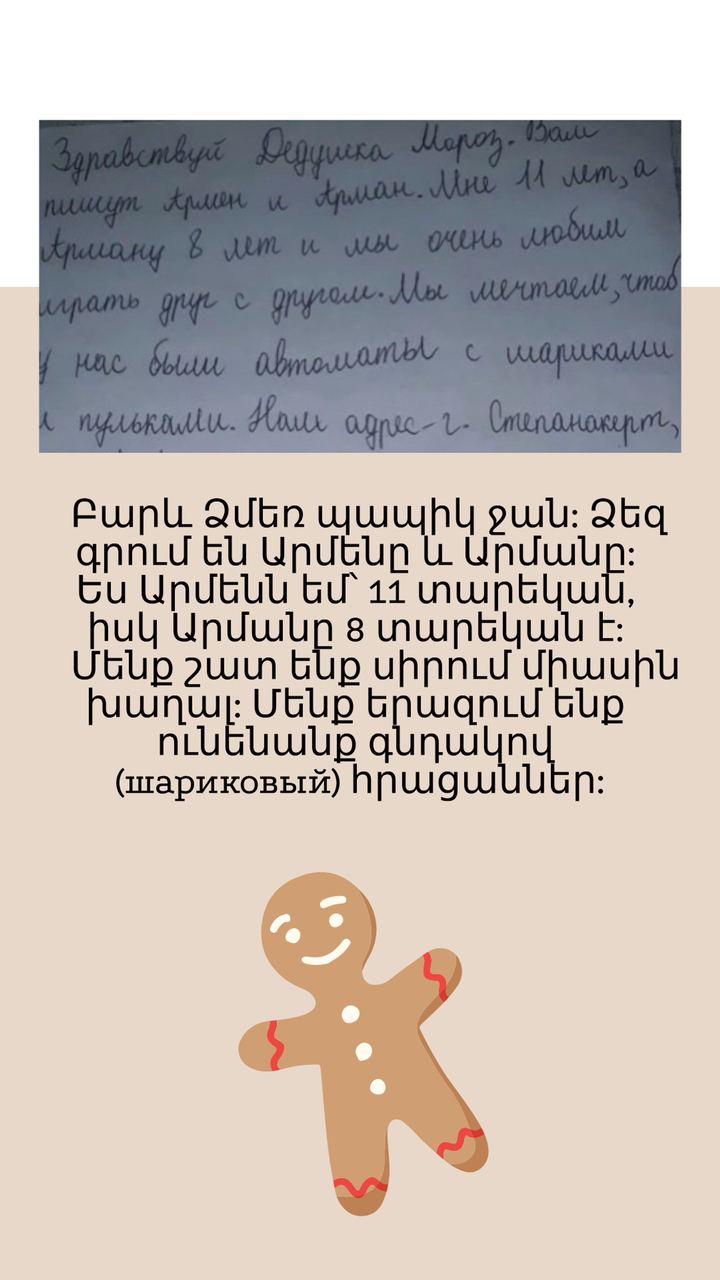 Здравствуй Дедушка Мороз. Вам
пишут Армен и Арман. Мне 11 лет, а
Арману 8 лет и мы очень любим
играть друг с другом. Мы мечтаем, чтоб
у нас были автоматы с шариками
и пульками. Наш адрес - г. Степанакерт,
Բարև Ձմեռ պապիկ ջան: Ձեզ
գրում են Արմենը և Արմանը:
Ես Արմենն եմ՝ 11 տարեկան,
իսկ Արմանը 8 տարեկան է:
Մենք շատ ենք սիրում միասին
խաղալ: Մենք երազում ենք
ունենանք գնդակով
(шариковый) հրացաններ: